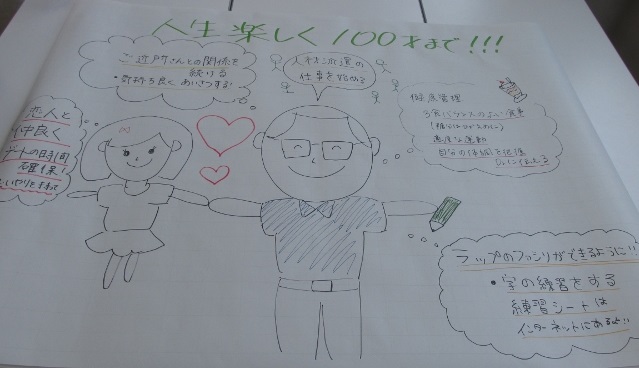 人生楽しく100才まで!!!
ご近戸斤さんとの関係を
続ける
・気持ち良く あいさつする
人材派遣の
仕事を始める
健康管理
3食バランスのよい食事
適度な運動
自分の体調を把握
Drに伝える
恋人と
仲良く
デートの時間
確保!
ラップのファンリができるように!!
・字の練習をする
練習シートは
インターネットにあるよ!!